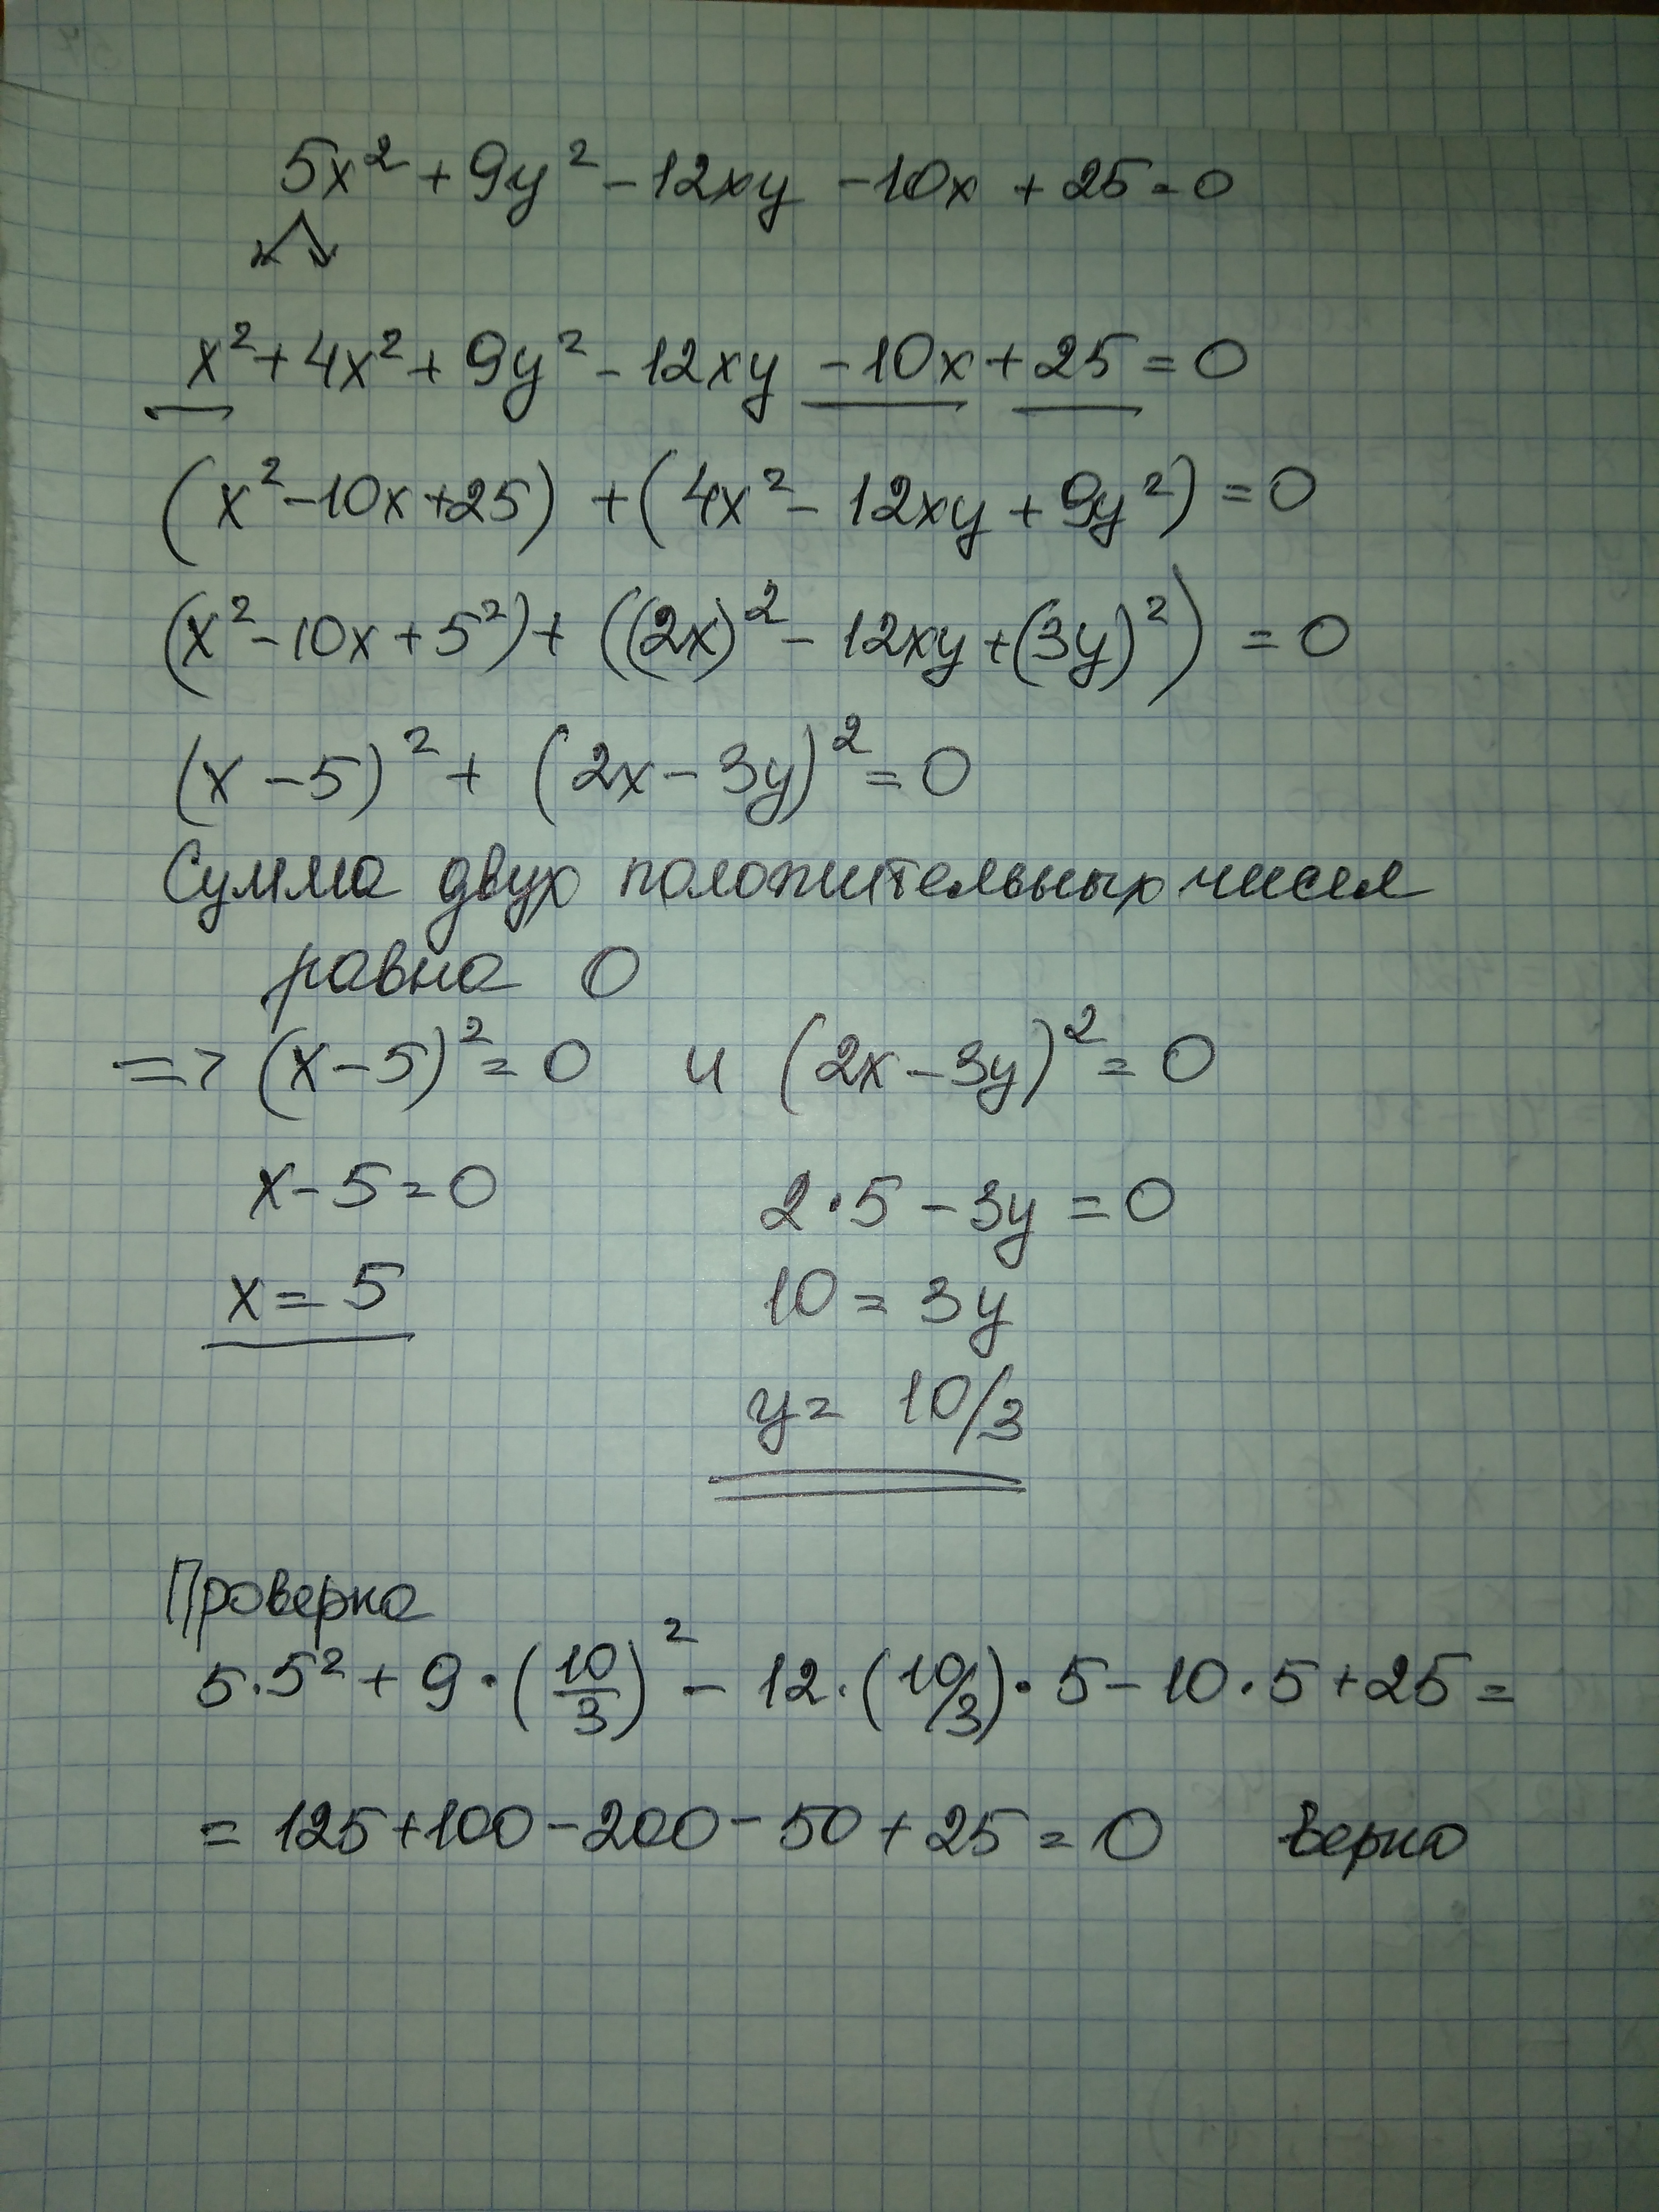 5x² + 9y² - 12xy - 10x + 25 = 0
x² + 4x² + 9y² - 12xy - 10x + 25 = 0
(x² - 10x + 25) + (4x² - 12xy + 9y²) = 0
(x² - 10x + 5²) + ((2x)² - 12xy + (3y)²) = 0
(x - 5)² + (2x - 3y)² = 0
Сумма двух положительных чисел
равна 0
=> (x - 5)² = 0 и (2x - 3y)² = 0
x - 5 = 0 2·5 - 3y = 0
x = 5 10 = 3y
y = 10/3
Проверка
5·5² + 9·(10/3)² - 12·(10/3)·5 - 10·5 + 25 =
= 125 + 100 - 200 - 50 + 25 = 0 верно